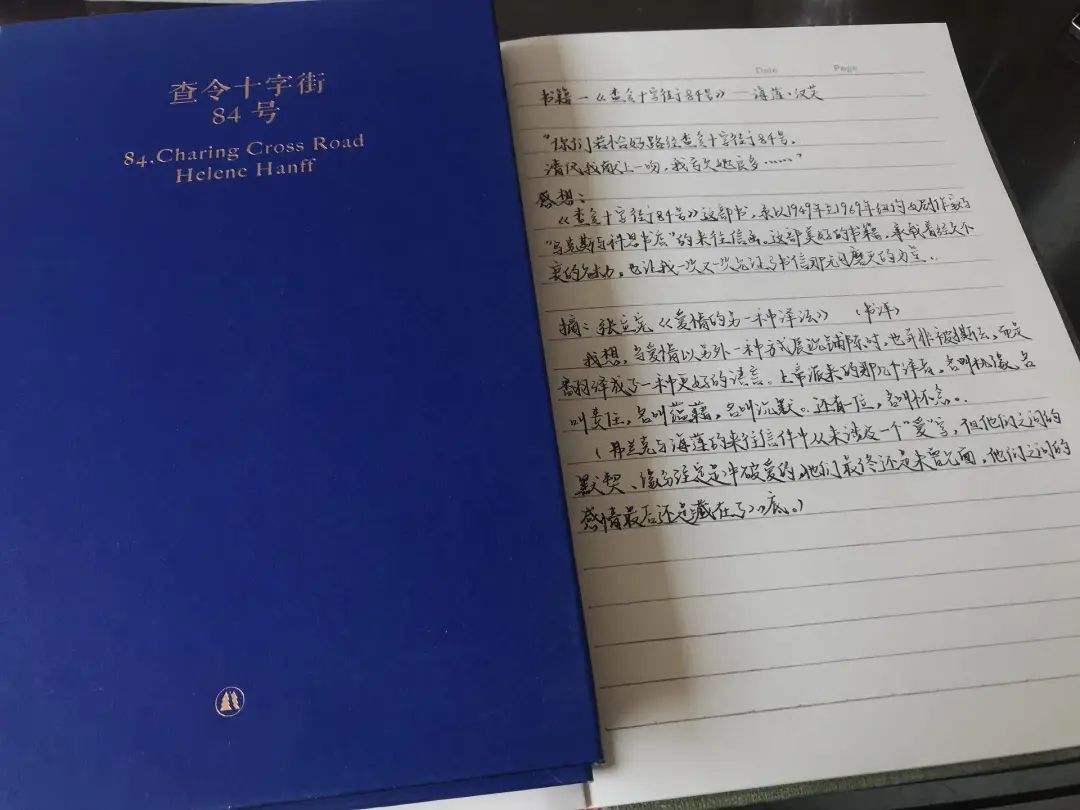 查令十字街
84 号
84,Charing Cross Road
Helene Hanff
Date Page
书籍一《查令十字街84号》— 海莲·汉芙
"你们若恰好路经查令十字街84号,
请代我献上一吻,我亏欠她良多……"
感想:
《查令十字街84号》这部书,录以1949年至1969年纽约女剧作家与
"马克斯与科恩书店"的来往信函。这部美好的书籍,承载着经久不
衰的魅力,也让我一次又一次见证了书信那无可磨灭的力量。
摘:张立宪《爱情的另一种译法》 (书评)
我想,当爱情以另外一种方式展沉铺陈时,也并非被摈去,而是
翻译成了一种更好的语言。上帝派来的那几个译者,名叫机缘,名
叫责任,名叫蕴藉,名叫沉默。还有一位,名叫怀念。
(弗兰克与海莲的来往信件中从未涉及一个"爱"字,但他们之间的
默契、缘分注定是冲破爱的,他们最终还是未曾见面,他们之间的
感情最后还是藏在了心底。)